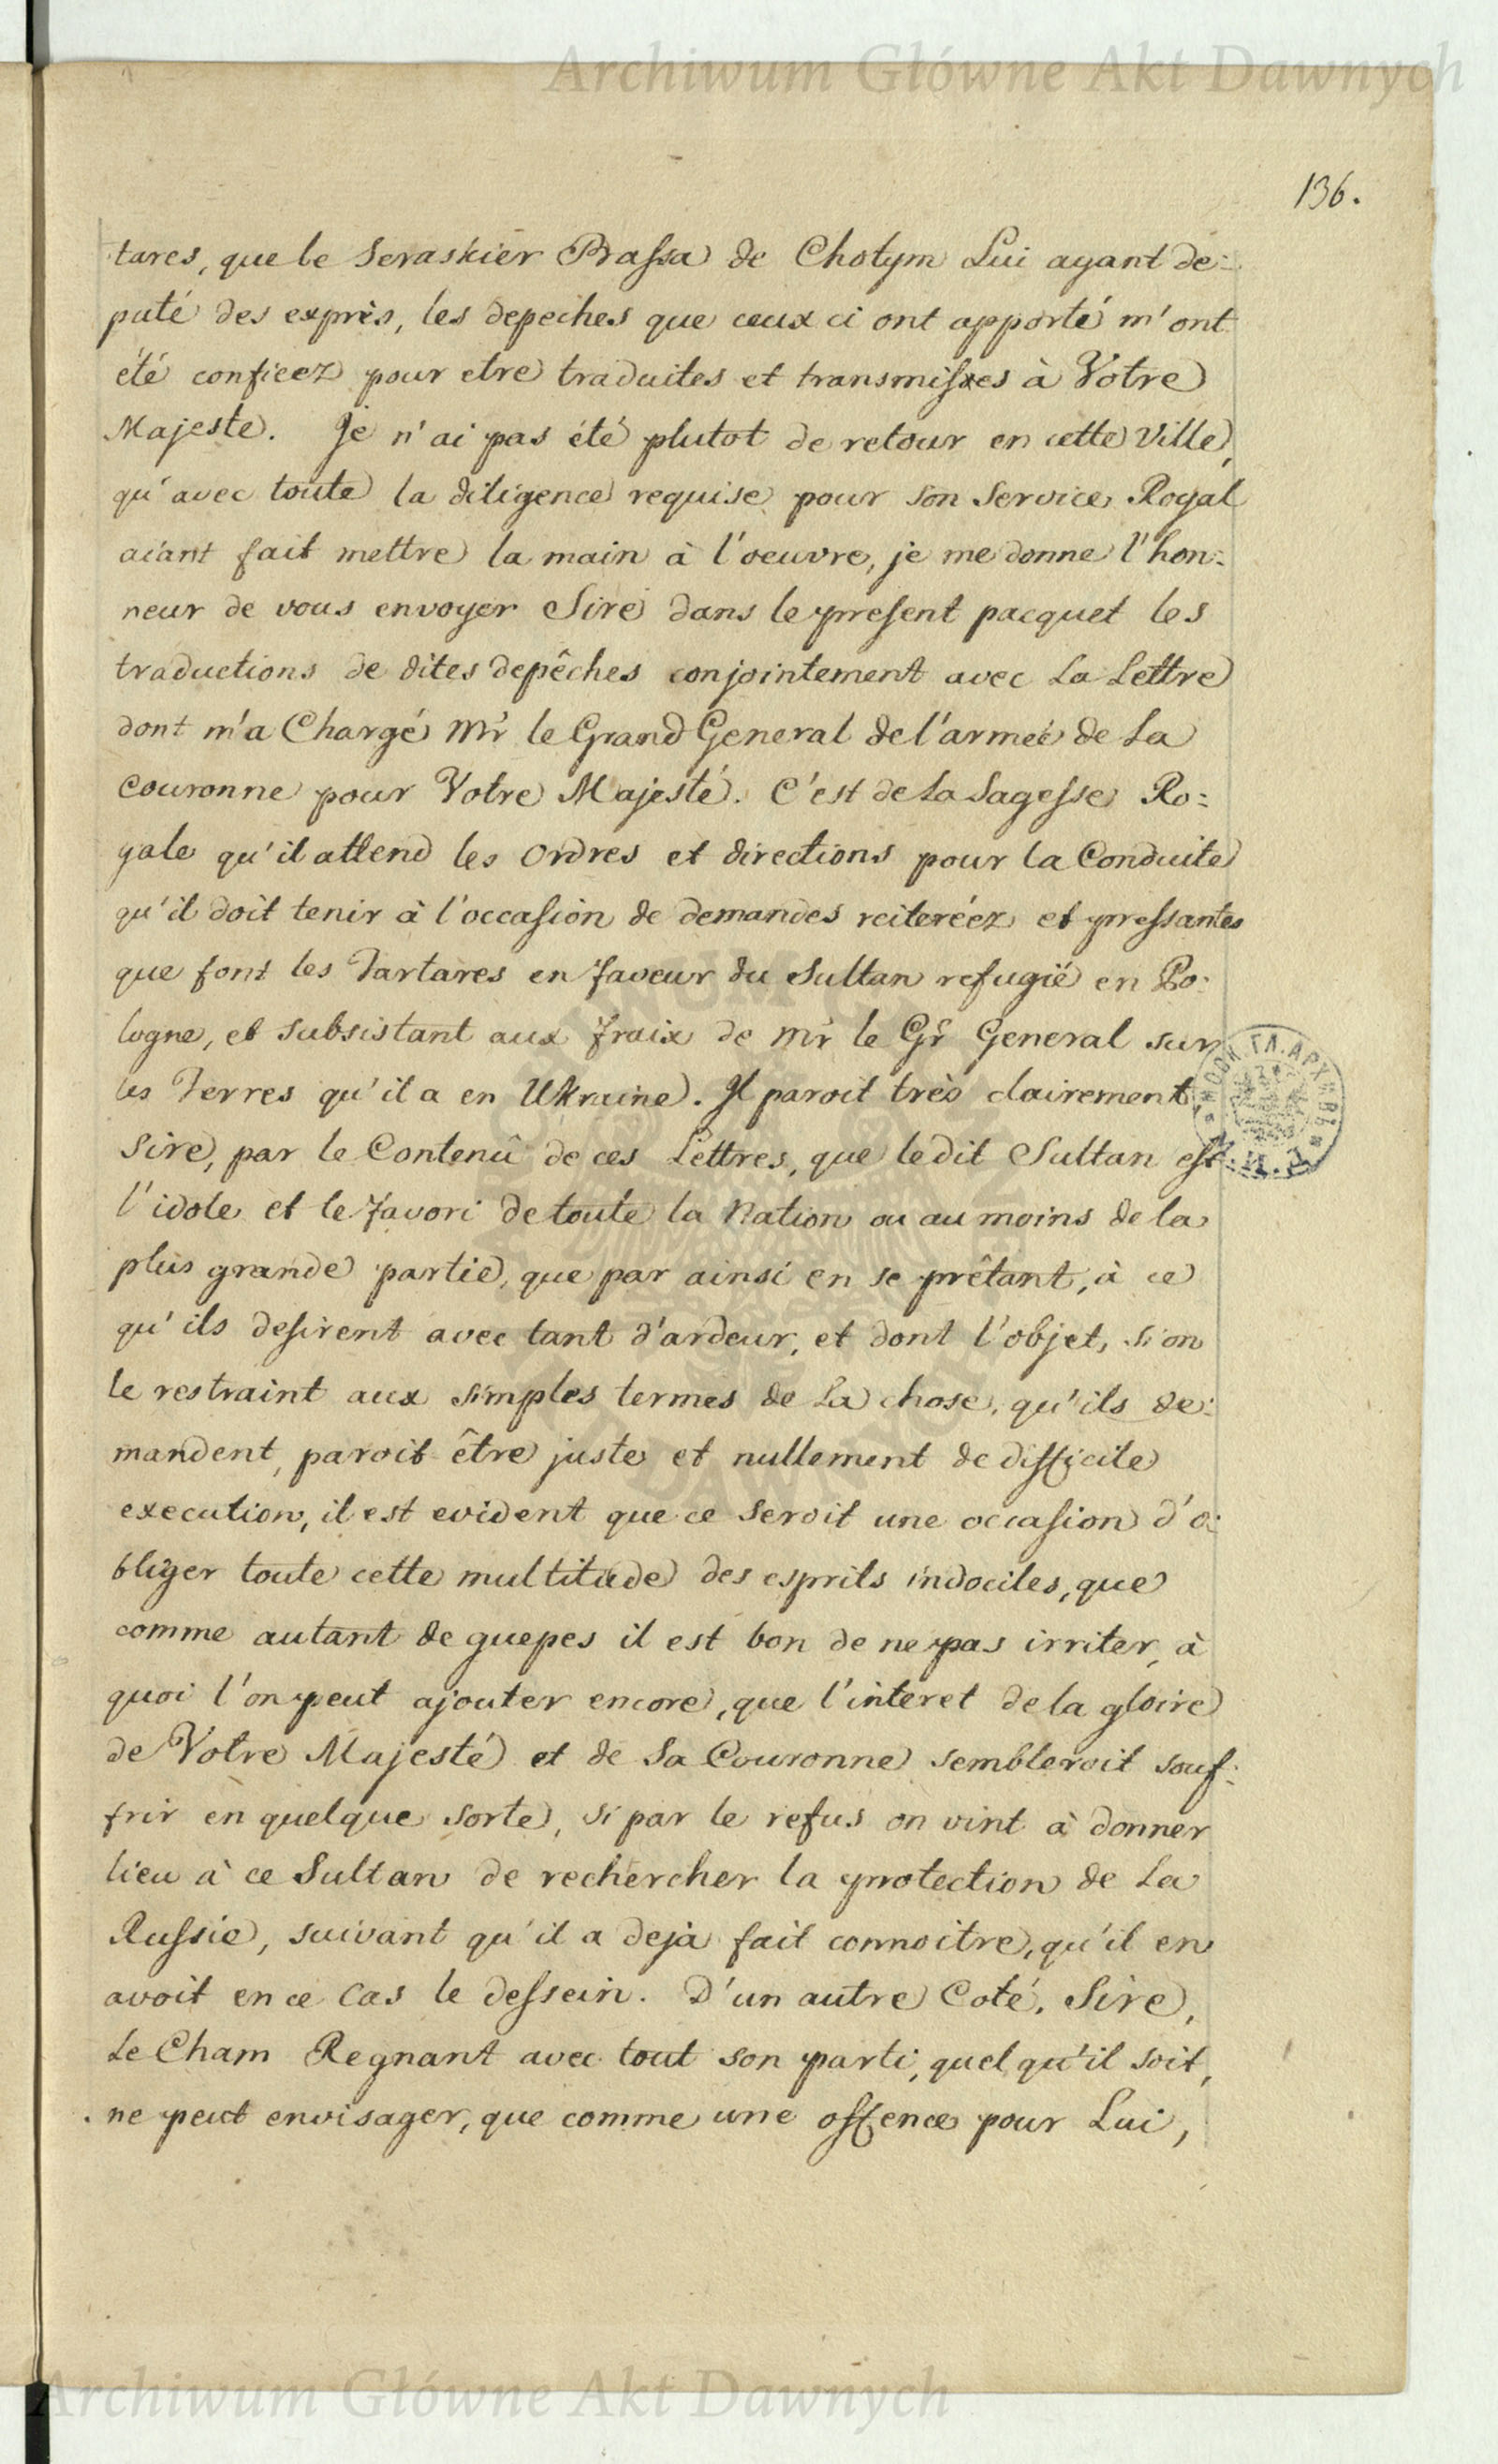 Archiwum Główne Akt Dawnych
136.
tares, que le Seraskier Bassa de Chotym Lui ayant de=
puté des exprès, les depeches que ceux ci ont apporté m'ont
été confieez pour etre traduites et transmises à Votre
Majesté. Je n'ai pas été plutot de retour en cette Ville,
qu'avec toute la diligence requise pour son Service Royal
aiant fait mettre la main à l'oeuvre, je me donne l'hon=
neur de vous envoyer Sire dans le present pacquet les
traductions de dites depêches conjointement avec La Lettre
dont m'a Chargé Mr le Grand General de l'armeé de La
Couronne pour Votre Majesté. C'est de La Sagesse Ro=
yale qu'il attend les Ordres et directions pour la Conduite
qu'il doit tenir à l'occasion de demandes reiteréez et pressantes
que font les Tartares en faveur du Sultan refugié en Po=
logne, et subsistant aux fraix de Mr le Gr General sur
les Terres qu'il a en Ukraine. Il paroit très clairement
Sire, par le Contenû de ces Lettres, que le dit Sultan est
l'idole et le favori de toute la Nation ou au moins de la
plus grande partie, que par ainsi en se prêtant, à ce
qu'ils desirent avec tant d'ardeur, et dont l'objet, si on
le restraint aux simples termes de La chose, qu'ils de=
mandent, paroit être juste et nullement de difficile
execution, il est evident que ce seroit une occasion d'o=
bliger toute cette multitude des esprits indociles, que
comme autant de guepes il est bon de ne pas irriter, à
quoi l'on peut ajouter encore, que l'interet de la gloire
de Votre Majesté et de Sa Couronne sembleroit souf=
frir en quelque sorte, si par le refus on vint à donner
lieu à ce Sultan de rechercher la protection de La
Russie, suivant qu'il a deja fait connoitre, qu'il en
avoit en ce Cas le dessein. D'un autre Coté, Sire,
Le Cham Regnant avec tout son parti, quel qu'il soit,
ne peut envisager, que comme une offence pour Lui,
Archiwum Główne Akt Dawnych